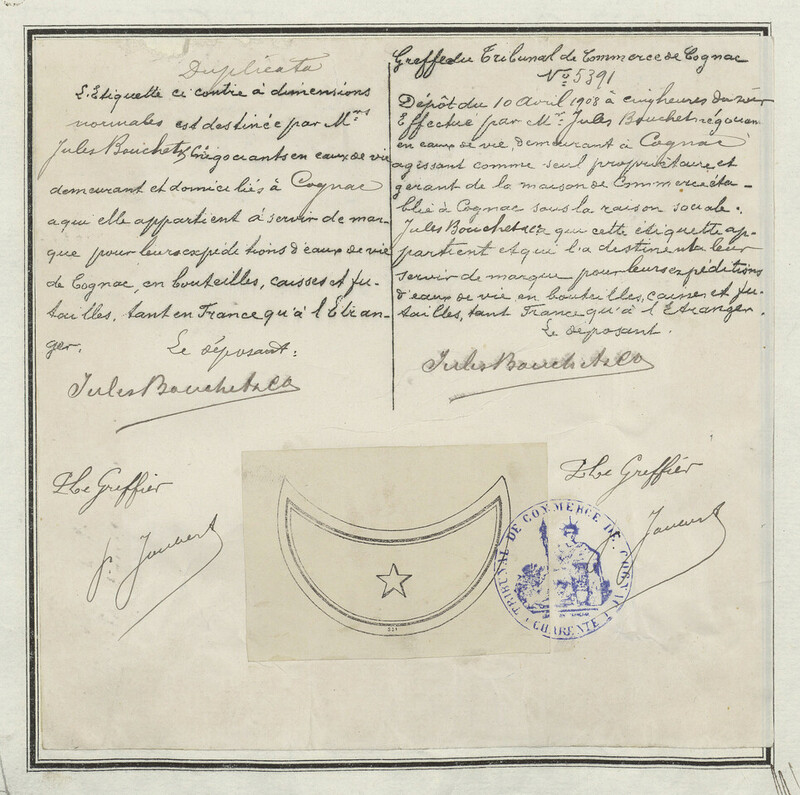 Duplicata
L'Etiquette ci contre à dimensions
normales est destinée par Mrs
Jules Bouchet & Co négociants en eaux de vie
demeurant et domiciliés à Cognac
a qui elle appartient à servir de mar-
que pour leurs expéditions d'eaux de vie
de Cognac, en bouteilles, caisses et fu-
tailles, tant en France qu'à l'Etran-
ger.
Le déposant:
Jules Bouchet & Co
Greffe du Tribunal de Commerce de Cognac
No 5391
Dépôt du 10 Avril 1908 à cinq heures du soir
Effectué par Mr Jules Bouchet négociant
en eaux de vie, demeurant à Cognac
agissant comme seul propriétaire et
gérant de la maison de Commerce éta-
blie à Cognac sous la raison sociale.
Jules Bouchet & Co a que cette étiquette ap-
partient et qui l'a destinent a leur
servir de marque pour leurs expéditions
d'eaux de vie en bouteilles, caisses et fu-
tailles, tant France qu'à l'Etranger.
Le déposant.
Jules Bouchet & Co
Le Greffier
Le Greffier
TRIBUNAL DE COMMERCE DE COGNAC
(CHARENTE)